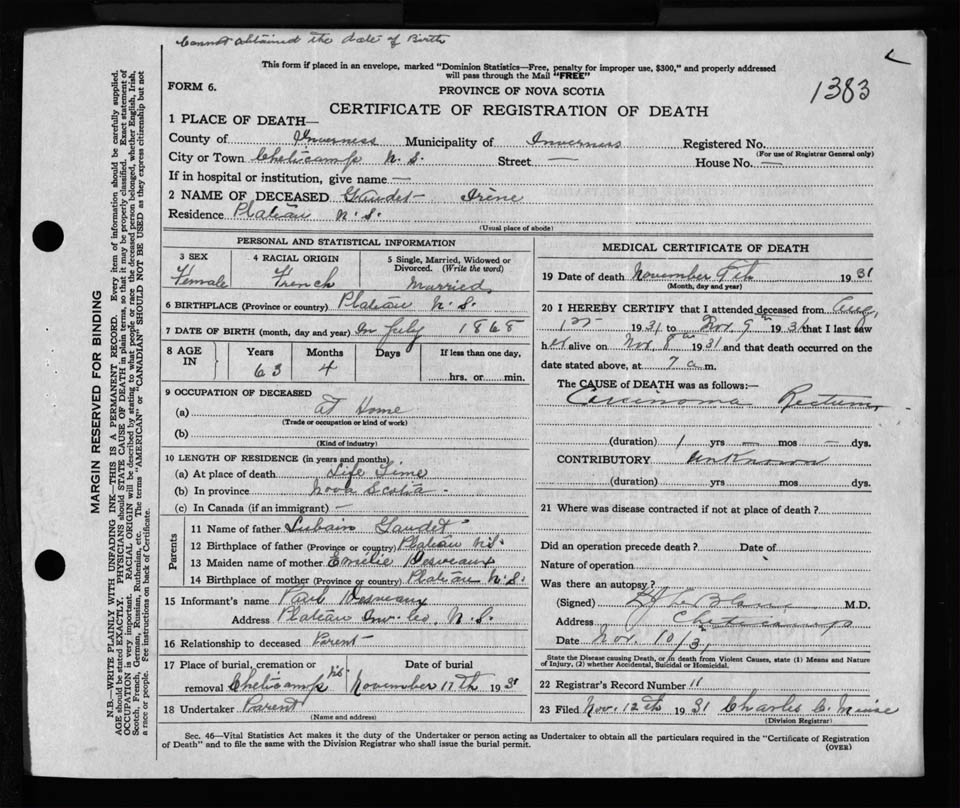 Cannot obtained the date of Birth
This form if placed in an envelope, marked "Dominion Statistics—Free, penalty for improper use, $300," and properly addressed
will pass through the Mail "FREE"
FORM 6.
PROVINCE OF NOVA SCOTIA
1383
CERTIFICATE OF REGISTRATION OF DEATH
1 PLACE OF DEATH—
County of Inverness Municipality of Inverness Registered No.
(For use of Registrar General only)
City or Town Cheticamp N. S. Street — House No. —
If in hospital or institution, give name —
2 NAME OF DECEASED Gaudet Irène
Residence Plateau N. S.
(Usual place of abode)
PERSONAL AND STATISTICAL INFORMATION
3 SEX Female
4 RACIAL ORIGIN French
5 Single, Married, Widowed or Divorced. (Write the word) Married
6 BIRTHPLACE (Province or country) Plateau N. S.
7 DATE OF BIRTH (month, day and year) In July 1868
8 AGE IN Years 63 Months 4 Days If less than one day, hrs. or min.
9 OCCUPATION OF DECEASED
(a) at Home
(Trade or occupation or kind of work)
(b)
(Kind of industry)
10 LENGTH OF RESIDENCE (in years and months)
(a) At place of death Life Time
(b) In province Nova Scotia
(c) In Canada (if an immigrant) —
Parents
11 Name of father Lubain Gaudet
12 Birthplace of father (Province or country) Plateau N.S.
13 Maiden name of mother Emilie Desveaux
14 Birthplace of mother (Province or country) Plateau N. S.
15 Informant's name Paul Desveaux
Address Plateau Inv. Co. N. S.
16 Relationship to deceased Parent
17 Place of burial, cremation or removal Cheticamp N.S. Date of burial November 11th 1931
18 Undertaker Parent
(Name and address)
MEDICAL CERTIFICATE OF DEATH
19 Date of death November 9th 1931
(Month, day and year)
20 I HEREBY CERTIFY that I attended deceased from Aug.
1st 1931 to Nov. 9th 1931 that I last saw
her alive on Nov. 8th 1931 and that death occurred on the
date stated above, at 7 a.m.
The CAUSE of DEATH was as follows:—
Carcinoma Rectum
(duration) 1 yrs — mos — dys.
CONTRIBUTORY unknown
(duration) yrs. mos. dys.
21 Where was disease contracted if not at place of death?
Did an operation precede death? Date of
Nature of operation
Was there an autopsy?
(Signed) LeBlanc M.D.
Address Cheticamp
Date Nov. 10/31
State the Disease causing Death, or in death from Violent Causes, state (1) Means and Nature
of Injury, (2) whether Accidental, Suicidal or Homicidal.
22 Registrar's Record Number 11
23 Filed Nov. 12th 1931 Charles C.
(Division Registrar)
Sec. 46—Vital Statistics Act makes it the duty of the Undertaker or person acting as Undertaker to obtain all the particulars required in the "Certificate of Registration
of Death" and to file the same with the Division Registrar who shall issue the burial permit.
(OVER)
MARGIN RESERVED FOR BINDING
N.B.—WRITE PLAINLY WITH UNFADING INK—THIS IS A PERMANENT RECORD. Every item of information should be carefully supplied.
AGE should be stated EXACTLY. PHYSICIANS should STATE CAUSE OF DEATH in plain terms, so that it may be properly classified. Exact statement of
OCCUPATION is very important. RACIAL ORIGIN will be described by stating to what people or race the deceased person belonged, whether English, Irish,
Scotch, French, German, Russian, Ruthenian, etc. The terms "AMERICAN" or "CANADIAN" SHOULD NOT BE USED as they express citizenship but not
a race or people. Fee instructions on back of Certificate.